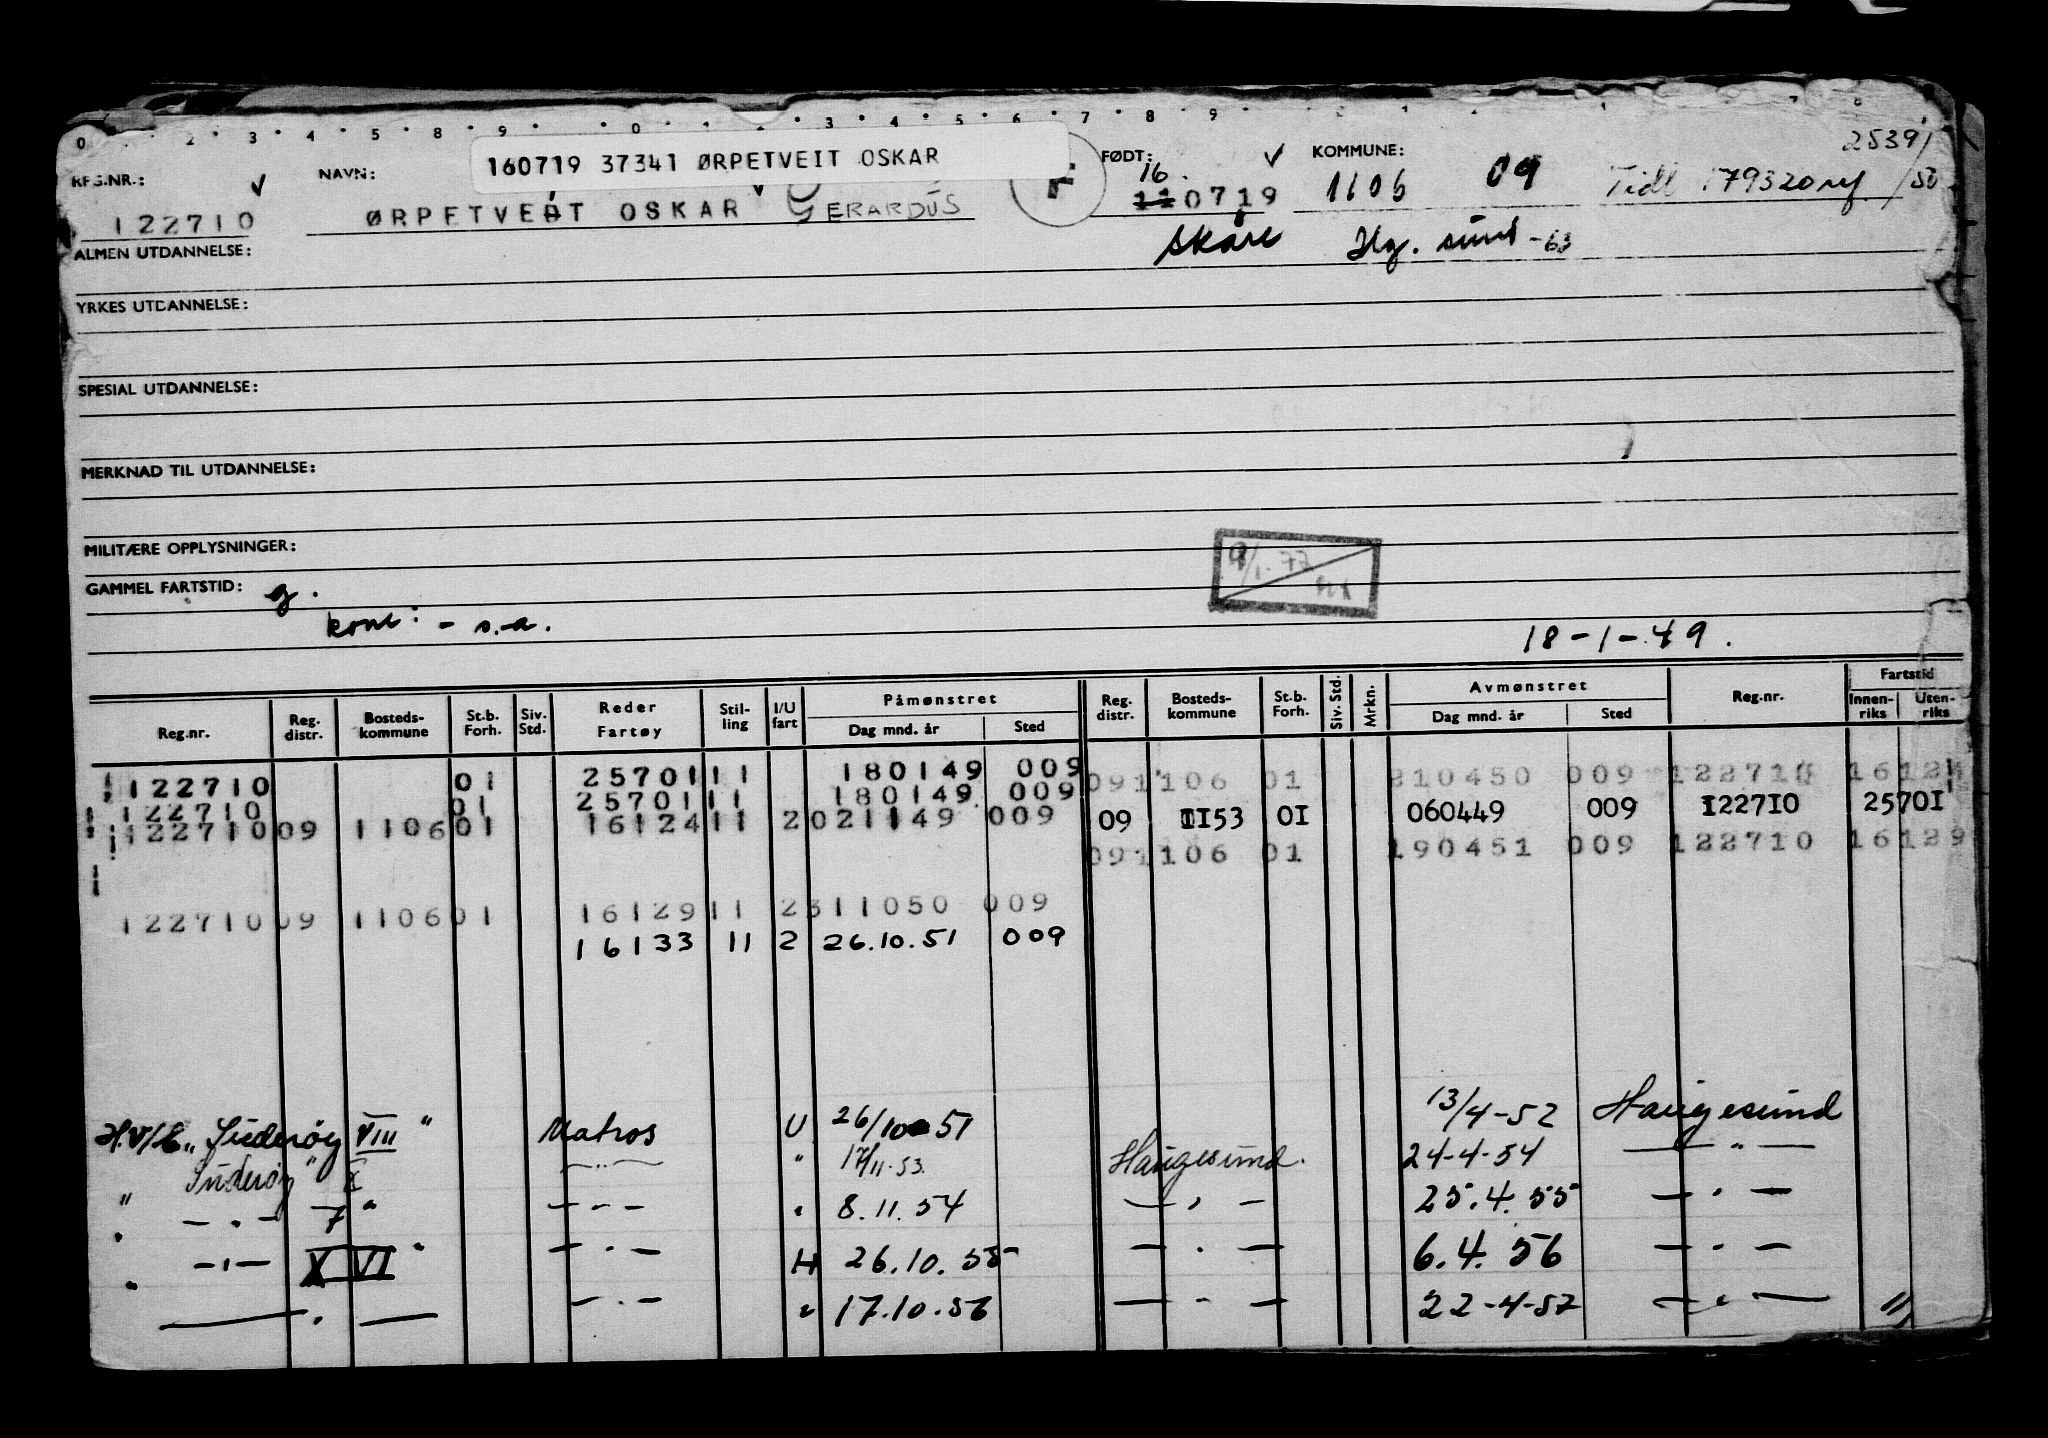 0 2 3 4 5 8 9 0 1 2 3 4 5 6 7 8 9
2539/50
REG.NR.: NAVN: 160719 37341 ØRPETVEIT OSKAR F FØDT: KOMMUNE:
16.
122710 ØRPETVEIT OSKAR GERARDUS 110719 1106 09 Tidl 179320
Skåre Hg. sund -63
ALMEN UTDANNELSE:
YRKES UTDANNELSE:
SPESIAL UTDANNELSE:
MERKNAD TIL UTDANNELSE:
MILITÆRE OPPLYSNINGER:
GAMMEL FARTSTID: g.
kont: - s.a.
18-1-49.
Reg.nr. Reg. distr. Bosteds-kommune St.b. Forh. Siv. Std. Reder Fartøy Stil-ling I/U fart Påmønstret Dag mnd. år Sted Reg. distr. Bosteds-kommune St.b. Forh. Siv. Std. Mrkn. Avmønstret Dag mnd. år Sted Reg.nr. Fartstid Innen-riks Uten-riks
122710 01 25701 11 180149 009 09 1106 01 210450 009 122710 16124
122710 01 25701 11 180149 009 09 1153 01 060449 009 122710 25701
122710 09 1106 01 16124 11 2 021149 009 09 1106 01 190451 009 122710 16129
122710 09 1106 01 16129 11 2 311050 009
16133 11 2 26.10.51 009
H.V/E „Suderøy VIII" Matros U 26/10 51 13/4-52 Haugesund
" Suderøy" X — " — " 17/11-53. Haugesund. 24-4-54 — " —
" — " — 7 " — " — " 8.11.54 — " — 25.4.55 — " —
" — " — X VI " — " — H 26.10.55 — " — 6.4.56 — " —
— " — — " — " 17.10.56 — " — 22-4-57 — " — "